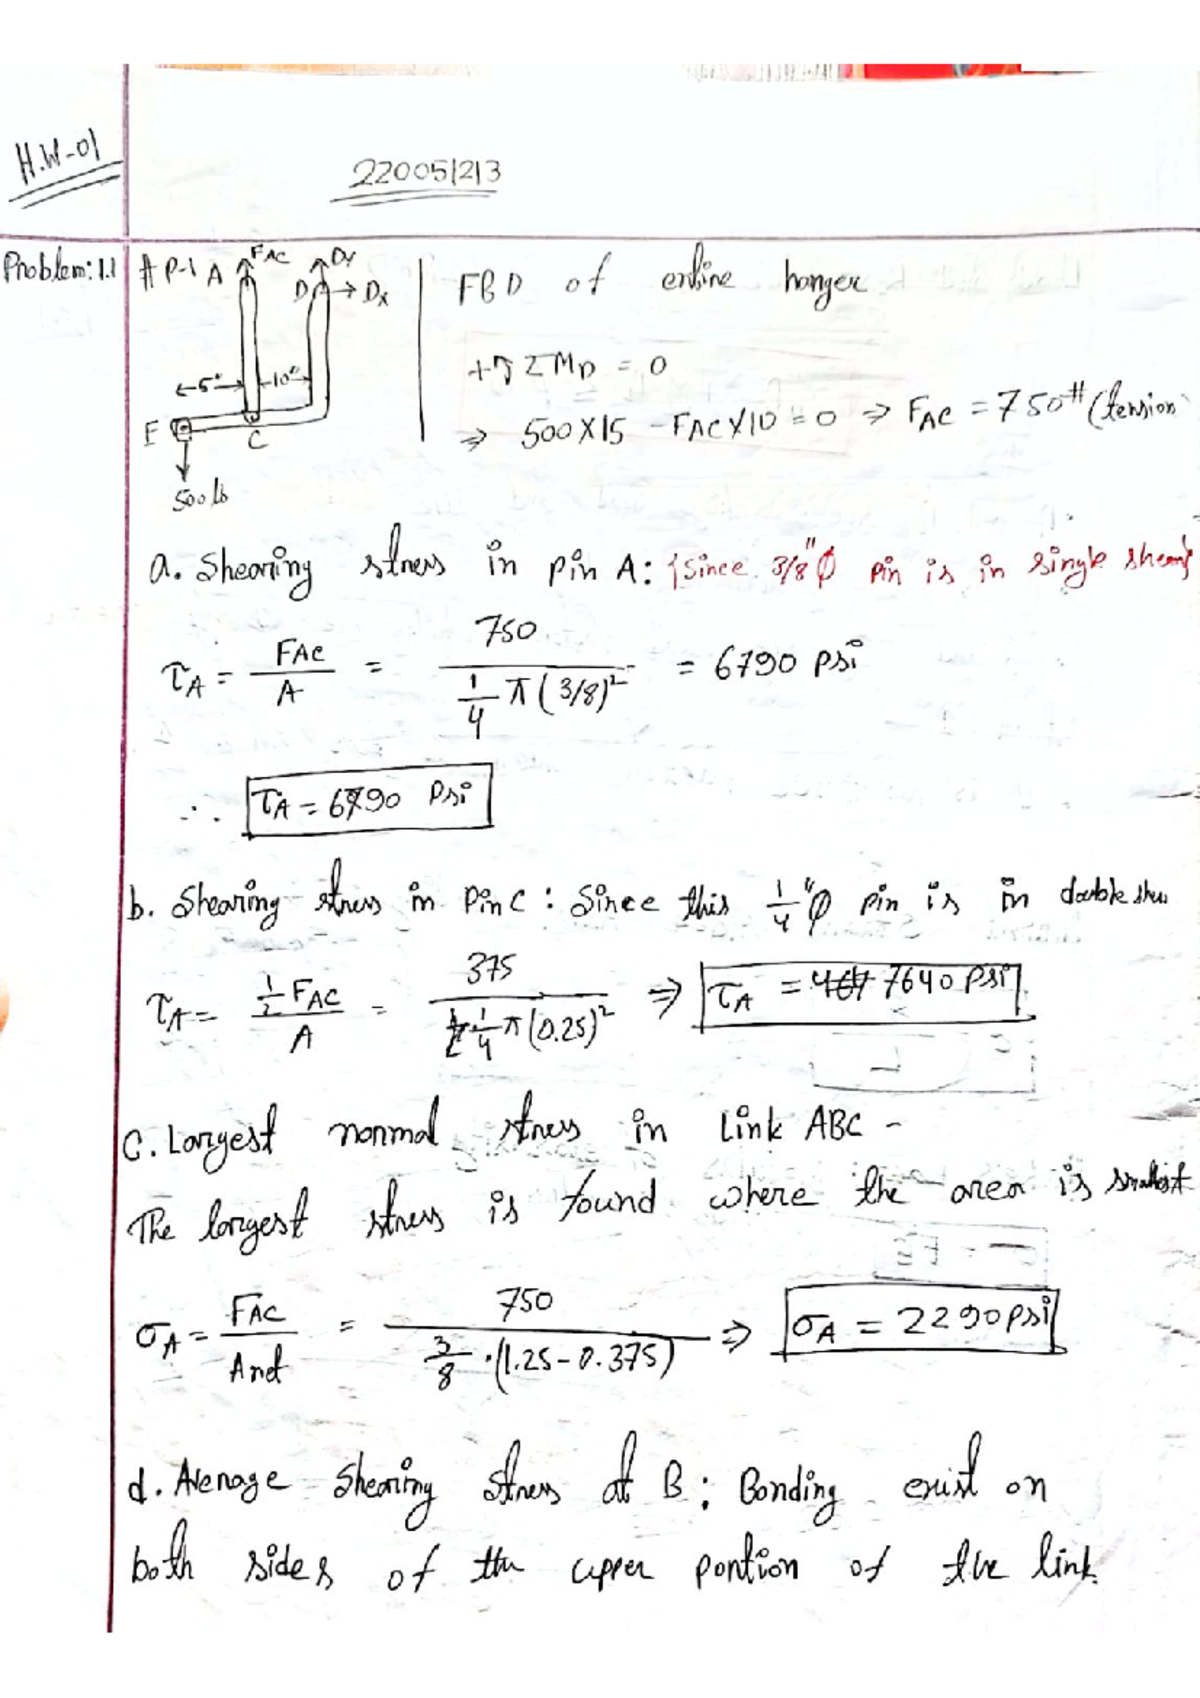 H.W-01
22005|2|3
Problem: 1.1
# P-1 A FAC Dy
D → Dx
←5"→ 10"
E C
500 lb
FBD of entire hanger
+↑ ΣMD = 0
⇒ 500X15 - FAC X10 = 0 ⇒ FAC = 750# (tension
a. Shearing stress in pin A: {Since 3/8"Φ pin is in single shear}
τA = FAC / A = 750 / (1/4 π (3/8)²) = 6790 psi
∴ τA = 6790 psi
b. Shearing stress in Pin C : Since this 1/4"Φ pin is in double
τA = 1/2 FAC / A = 375 / (1/4 π (0.25)²) ⇒ τA = 7640 psi
C. Largest normal stress in Link ABC -
The largest stress is found where the area is smallest
σA = FAC / Anet = 750 / (3/8 · (1.25 - 0.375)) ⇒ σA = 2290 psi
d. Average Shearing stress at B : Bonding exist on
both sides of the upper portion of the link.